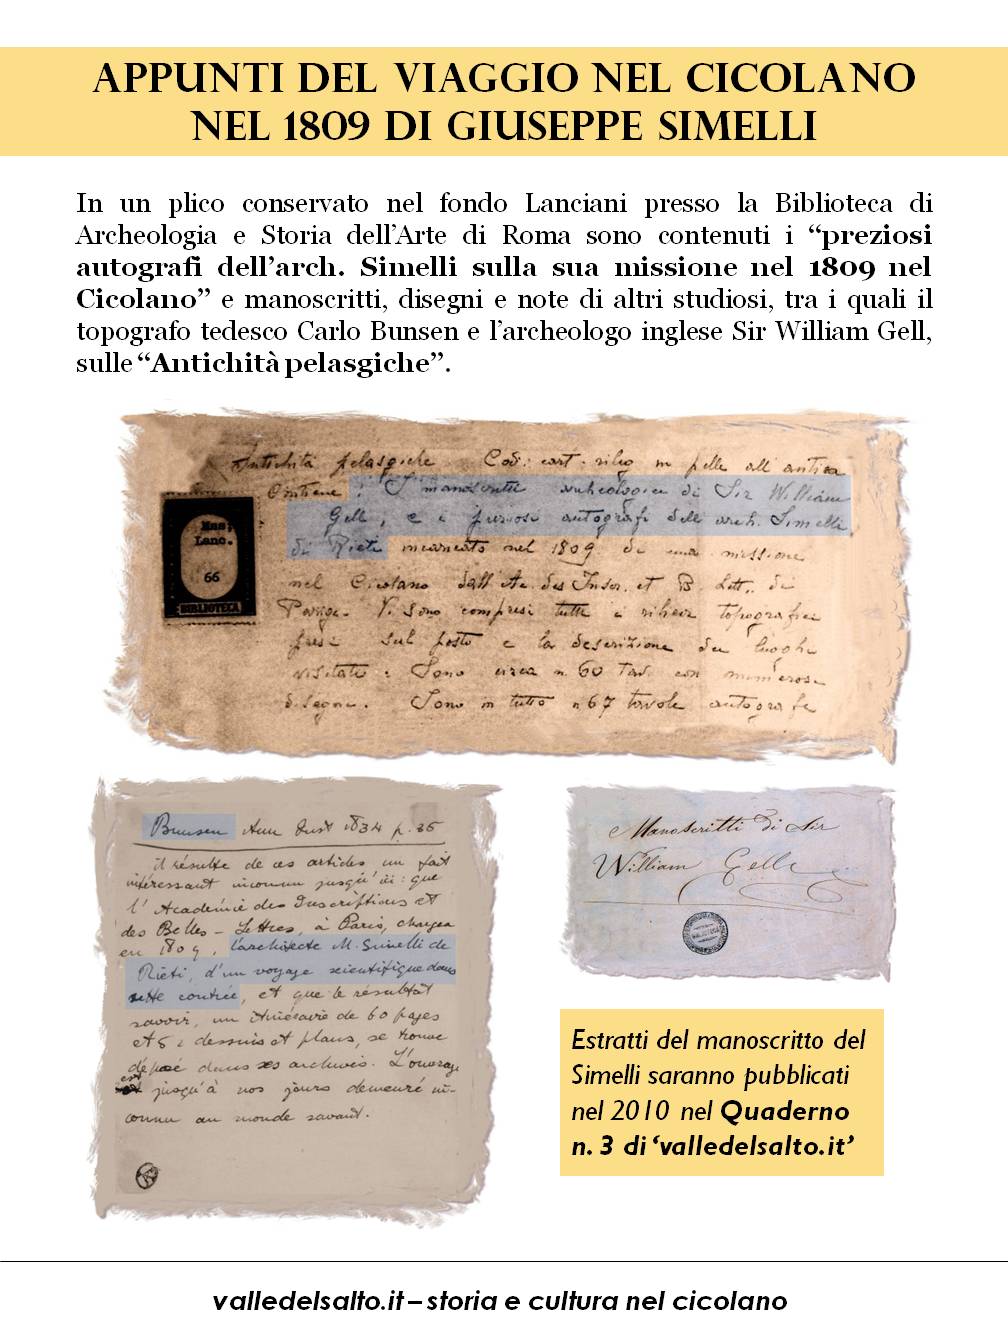 APPUNTI DEL VIAGGIO NEL CICOLANO
NEL 1809 DI GIUSEPPE SIMELLI
In un plico conservato nel fondo Lanciani presso la Biblioteca di
Archeologia e Storia dell'Arte di Roma sono contenuti i “preziosi
autografi dell'arch. Simelli sulla sua missione nel 1809 nel
Cicolano” e manoscritti, disegni e note di altri studiosi, tra i quali il
topografo tedesco Carlo Bunsen e l'archeologo inglese Sir William Gell,
sulle “Antichità pelasgiche”.
Antichità pelasgiche. Cod. cart. rileg in pelle all'antica
Contiene: I manoscritti archeologici di Sir William
Gell, e i preziosi autografi dell'arch. Simelli
di Rieti incaricato nel 1809 di una missione
nel Cicolano dall'Ac. des Inscr. et B. Lett. di
Parigi. Vi sono compresi tutti i rilievi topografici
presi sul posto e la descrizione dei luoghi
visitati. Sono circa n. 60 tav. con numerosi
disegni. Sono in tutto n 67 tavole autografe
Mss.
Lanc.
66
BIBLIOTECA
Bunsen Ann Inst 1834 p. 36
il résulte de ces articles un fait
intéressant inconnu jusqu'ici: que
l'Academie des Inscriptions et
des Belles-Lettres, à Paris, chargea
en 1809, l'architecte M. Simelli de
Rieti, d'un voyage scientifique dans
cette contrée, et que le résultat
savoir, un itinéraire de 60 pages
et 51 dessins et plans, se trouve
déposé dans ses archives. L'ouvrage
est jusqu'à nos jours demeuré in-
connu au monde savant.
Manoscritti di Sir
William Gell
Estratti del manoscritto del
Simelli saranno pubblicati
nel 2010 nel Quaderno
n. 3 di ‘valledelsalto.it’
valledelsalto.it – storia e cultura nel cicolano